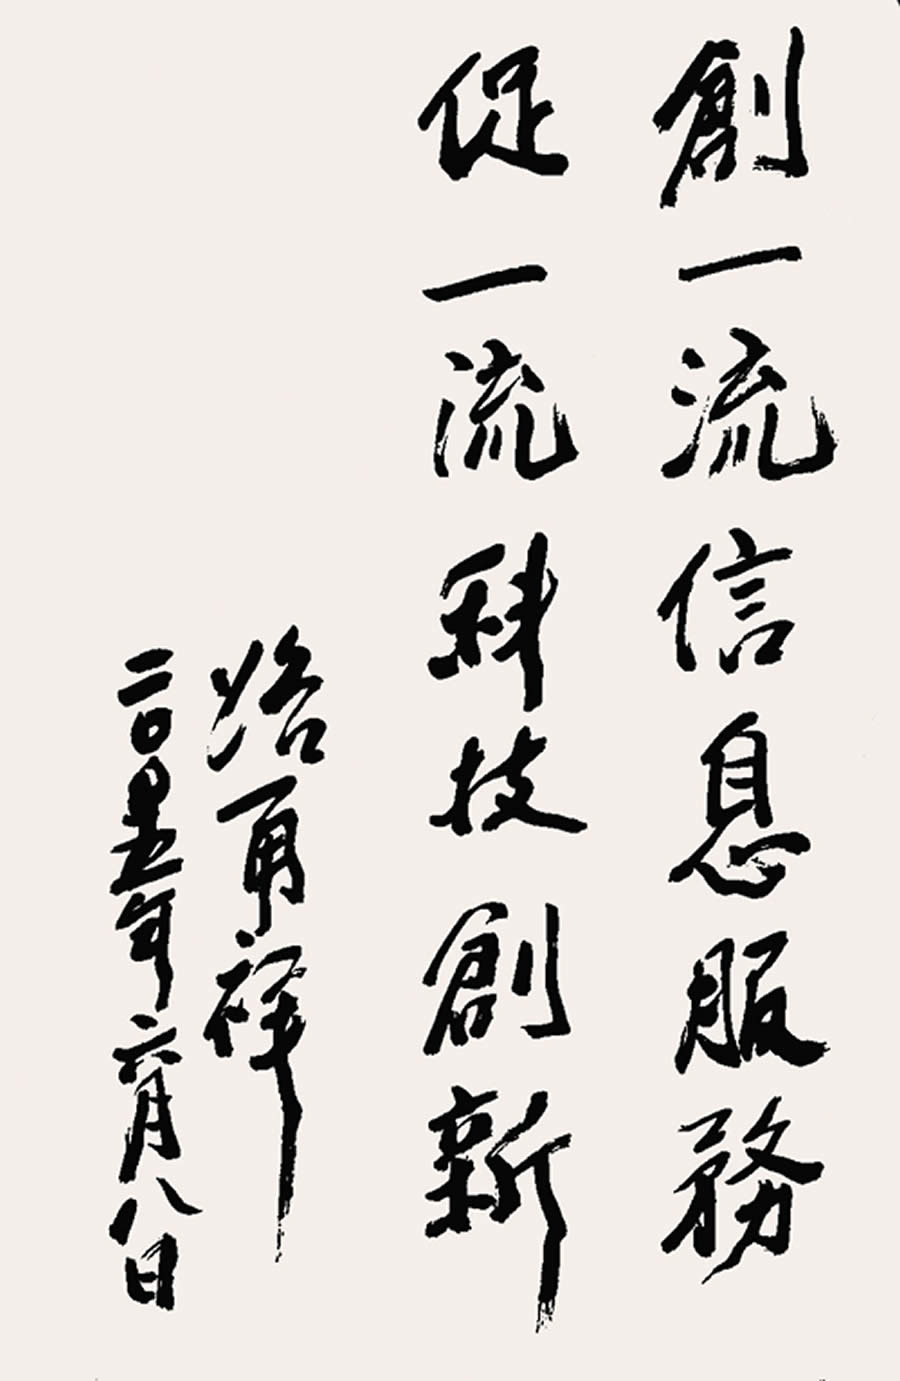 創一流信息服務
促一流科技創新
路甬祥
二〇〇五年六月八日